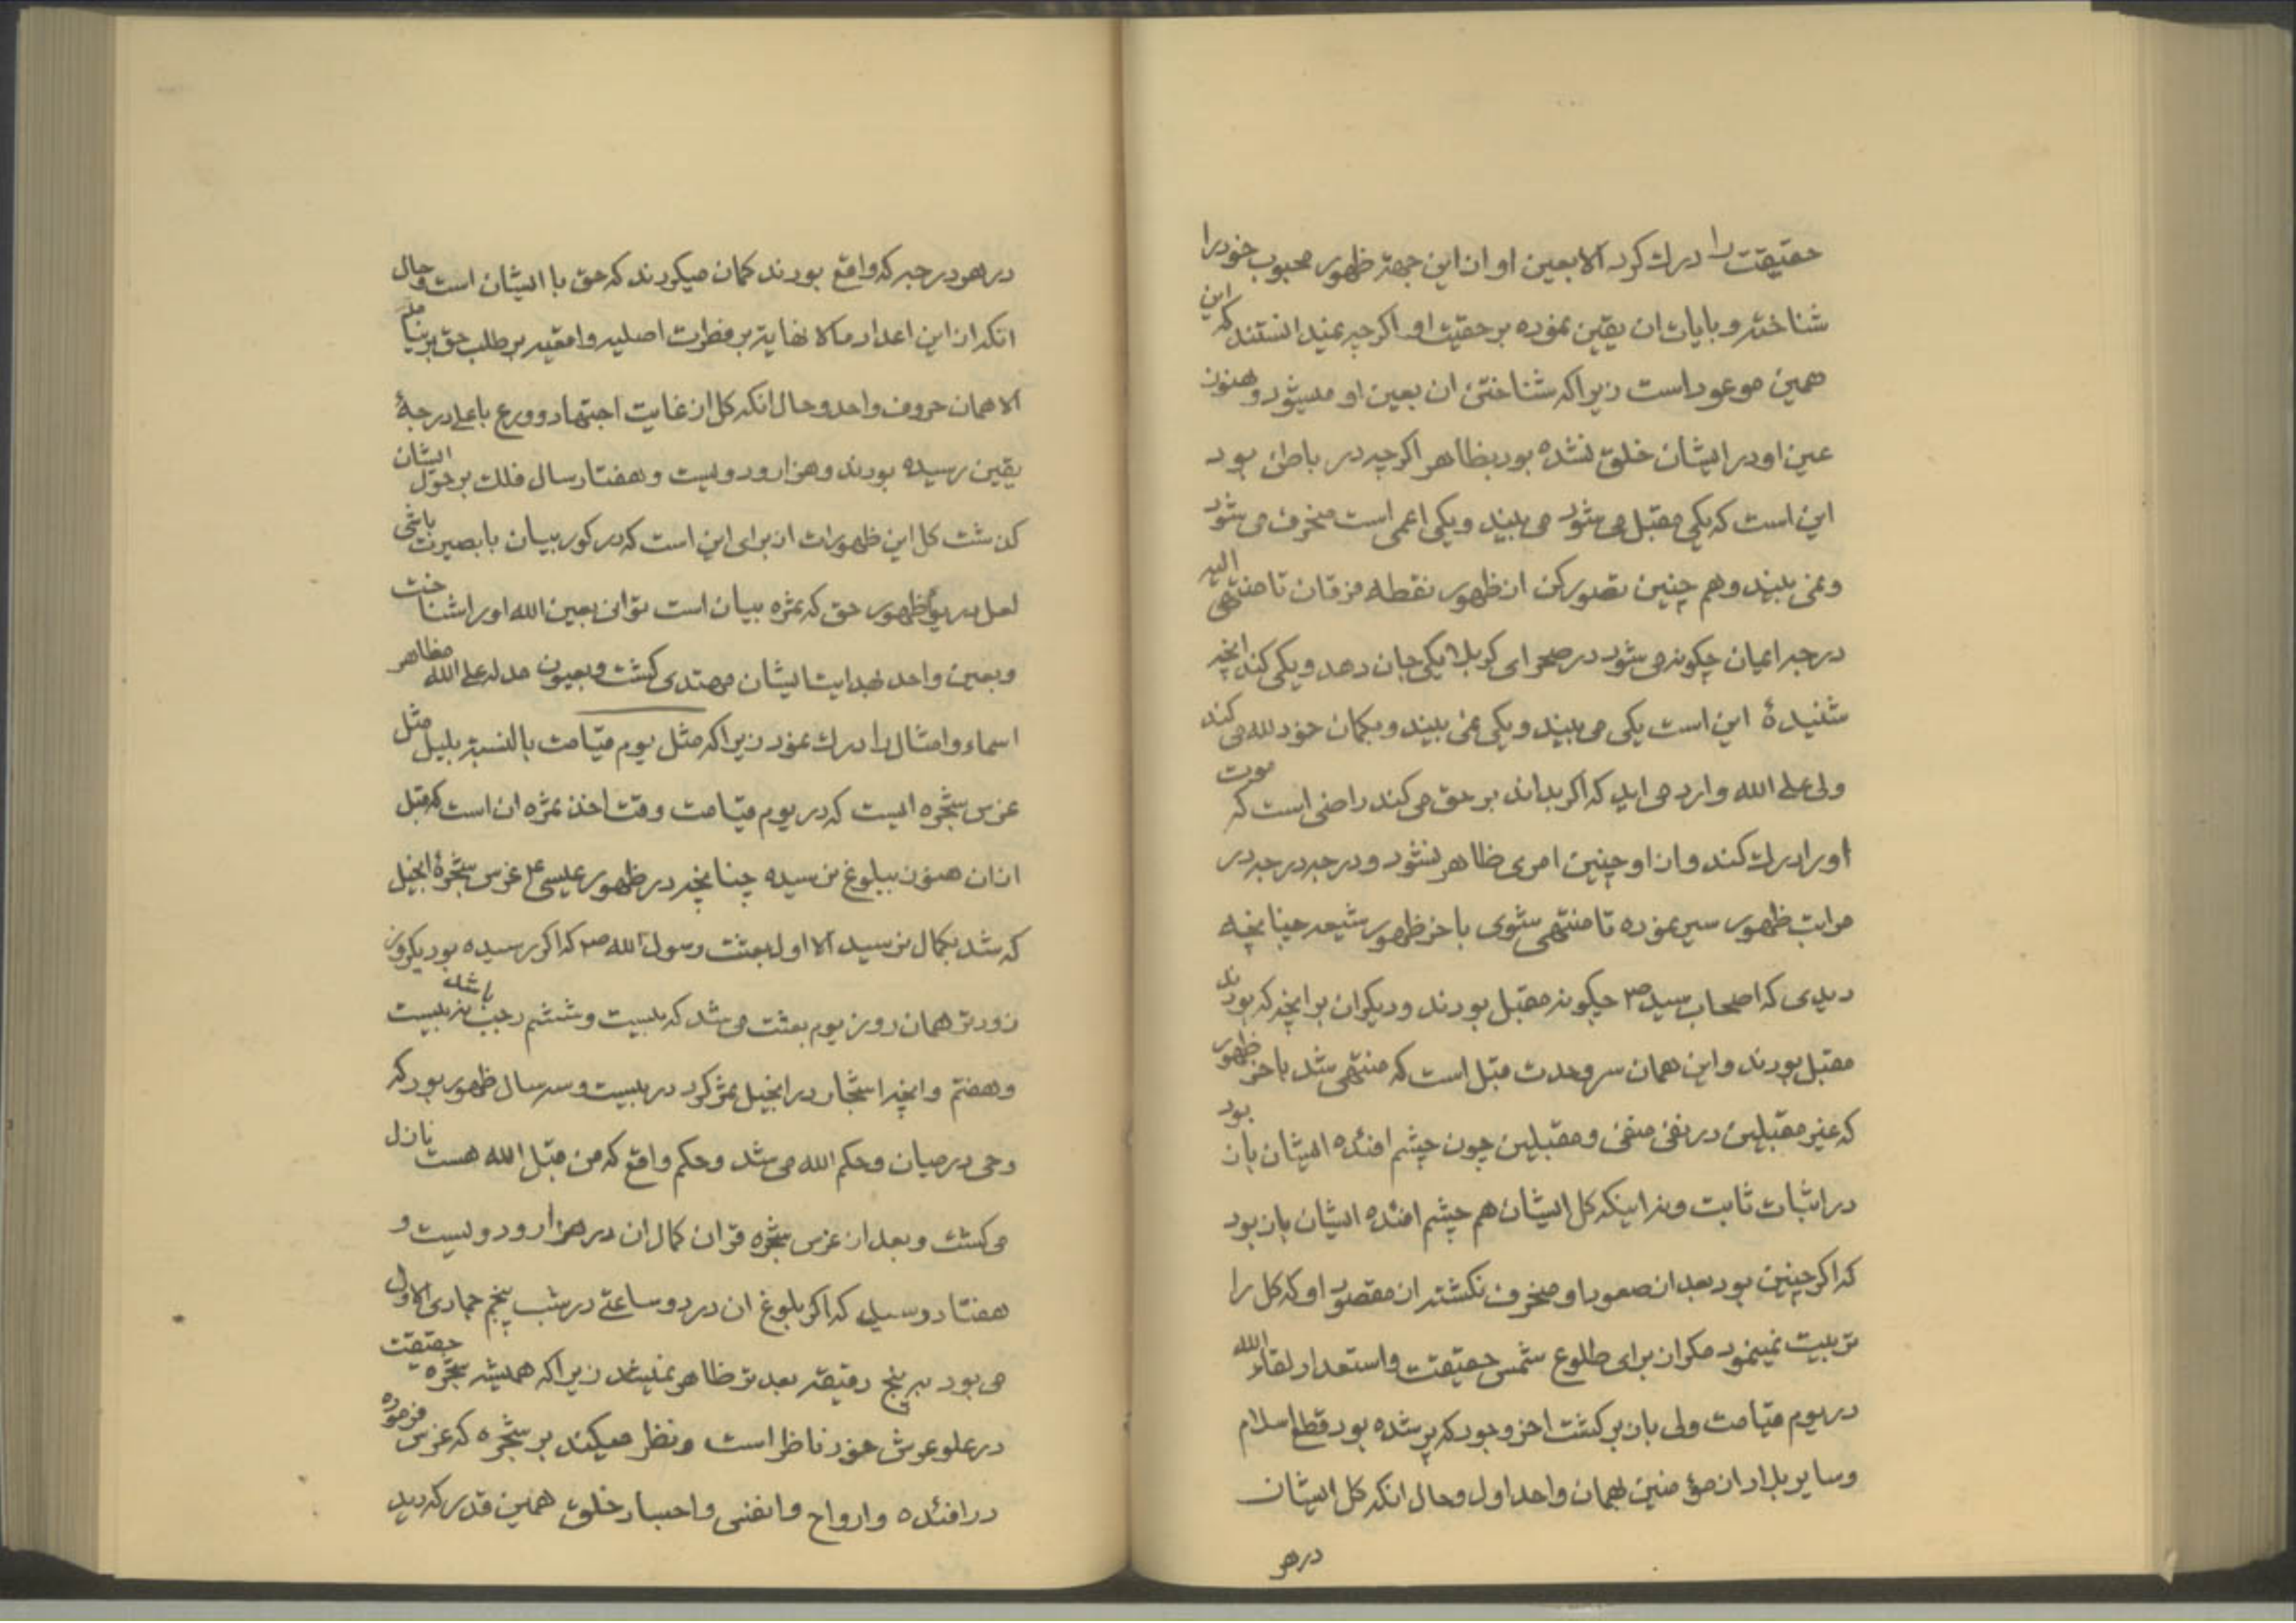 حقیقت را درك كرد الا بعین او از این جهة ظهور محبوب خود را
شناخته و بایات ان یقین نموده بر حقیت او اكرچه نمیدانستند كه این
همین موعود است زیرا كه شناختن ان بعین او میشود و هنوز
عین او در ایشان خلق نشده بود بظاهر اكرچه در باطن بود
این است كه یكی مقبل می شود می بیند و یكی اعمی است منحرف می شود
و نمی بیند و هم چنین تصور كن از ظهور نقطه فرقان تا منتهی الیه
درجه ایمان چكونه می شود در صحرای كربلا یكی جان دهد و یكی كند انچه
شنیدهٔ این است یكی می بیند و یكی نمی بیند و بكمان خود لله می كند
ولی علی الله وارد می اید كه اكر بداند بر حق می كند راضی است كه موت
او را درك كند و از او چنین امری ظاهر نشود و درجه درجه در
مراتب ظهور سیر نموده تا منتهی شوی باخر ظهور شیعه چنانچه
دیدی كه اصحاب سید ص چكونه مقبل بودند و دیكران بر انچه كه بودند
مقبل بودند و این همان سر وحدت قبل است كه منتهی شد باخر ظهور
كه غیر مقبلین در نفی منفی و مقبلین چون چشم افئده ایشان باز بود
در اثبات ثابت و نه اینكه كل ایشان هم چشم افئده ایشان باز بود
كه اكر چنین بود بعد از صعود او منحرف نكشته از مقصود او كه كل را
تربیت نمینمود مكر از برای طلوع شمس حقیقت و استعداد لقاء الله
در یوم قیامت ولی باز بركشت اخر وجود كه پر شده بود قطع اسلام
و سایر بلاد از مؤمنین بهمان واحد اول و حال انكه كل ایشان
در هر
در هر درجه كه واقع بودند كمان میكردند كه حق با ایشان است و حال
انكه از این اعداد ما لا نهایة بر فطرت اصلیه واقعیه بر طلب حق بر نیامد
الا همان حروف واحد و حال انكه كل از غایت اجتهاد و ورع باعلی درجهٔ
یقین رسیده بودند و هزار و دویست و هفتاد سال فلك بر حول ایشان
كذشت كل این ظهورات از برای این است كه در كور بیان با بصیرت باشی
لعل در یوم ظهور حق كه ثمره بیان است توانی بعین الله او را شناخت
و بعین واحد بهدایت ایشان مهتدی كشت و بعیون مدله علی الله مظاهر
اسماء و امثال را درك نمود زیرا كه مثل یوم قیامت بالنسبة بلیل مثل
غرس شجره ایست كه در یوم قیامت وقت اخذ ثمره ان است كه قبل
از ان هنوز ببلوغ نرسیده چنانچه در ظهور عیسی ع غرس شجرهٔ انجیل
كه شد بكمال نرسید الا اول بعثت رسول الله ص كه اكر رسیده بود یكروز
زودتر همان روز یوم بعثت می شد كه بیست و ششم رجب باشد نه بیست
و هفتم و انچه اشجار در انجیل ثمر كرد در بیست و سه سال ظهور بود كه
وحی در میان و حكم الله می شد و حكم واقع كه من قبل الله هست نازل
می كشت و بعد از غرس شجره قران كمال ان در هزار و دویست و
هفتاد رسید كه اكر بلوغ ان در دو ساعتی در شب پنجم جمادی الاول
می بود به پنج دقیقه بعد تر ظاهر نمیشد زیرا كه همیشه شجره حقیقت
در علو عرش خود ناظر است و نظر میكند بر شجره كه غرس فرموده
در افئده و ارواح و انفس و اجساد خلق همین قدر كه دید